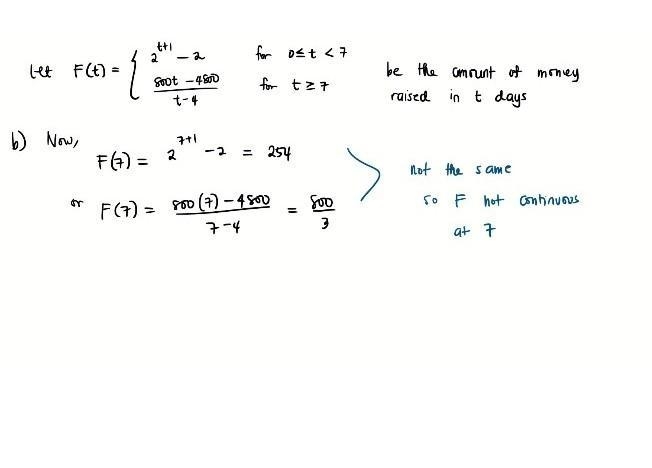 Let F(t) = { 2^{t+1} - 2 for 0 ≤ t < 7
(800t - 4800)/(t-4) for t ≥ 7
be the amount of money
raised in t days
b) Now,
F(7) = 2^{7+1} - 2 = 254
or F(7) = (800(7) - 4800)/(7-4) = 800/3
not the same
so F not continuous
at 7